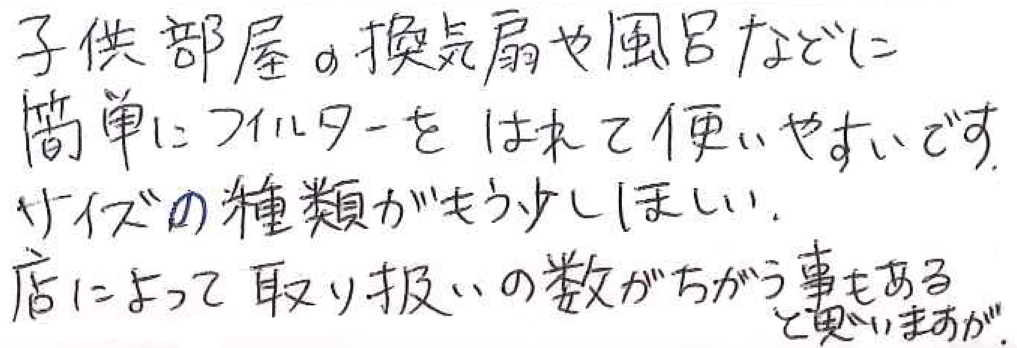 子供部屋の換気扇や風呂などに
簡単にフィルターを はれて使いやすいです.
サイズの種類がもう少しほしい.
店によって取り扱いの数がちがう事もある
と思いますが.